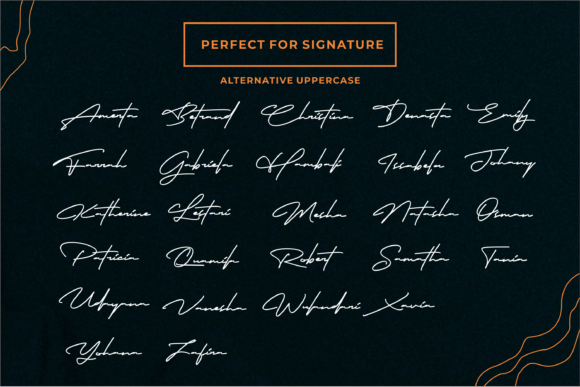 PERFECT FOR SIGNATURE
ALTERNATIVE UPPERCASE
Amerta Betrand Christina Denasta Emily
Farrah Gabriela Hambali Issabela Johany
Katherine Lestari Mesha Natasha Osman
Patricia Quamila Robert Samatha Tania
Udayana Vanesha Wulandari Xavia
Yohana Zafira